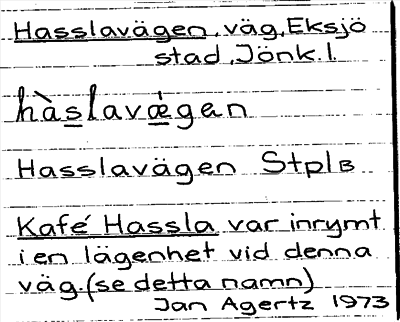 Hasslavägen, väg, Eksjö
stad, Jönk.l.
hàslavǽgan
Hasslavägen StplB
Kafé Hassla var inrymt
i en lägenhet vid denna
väg. (se detta namn)
Jan Agertz 1973